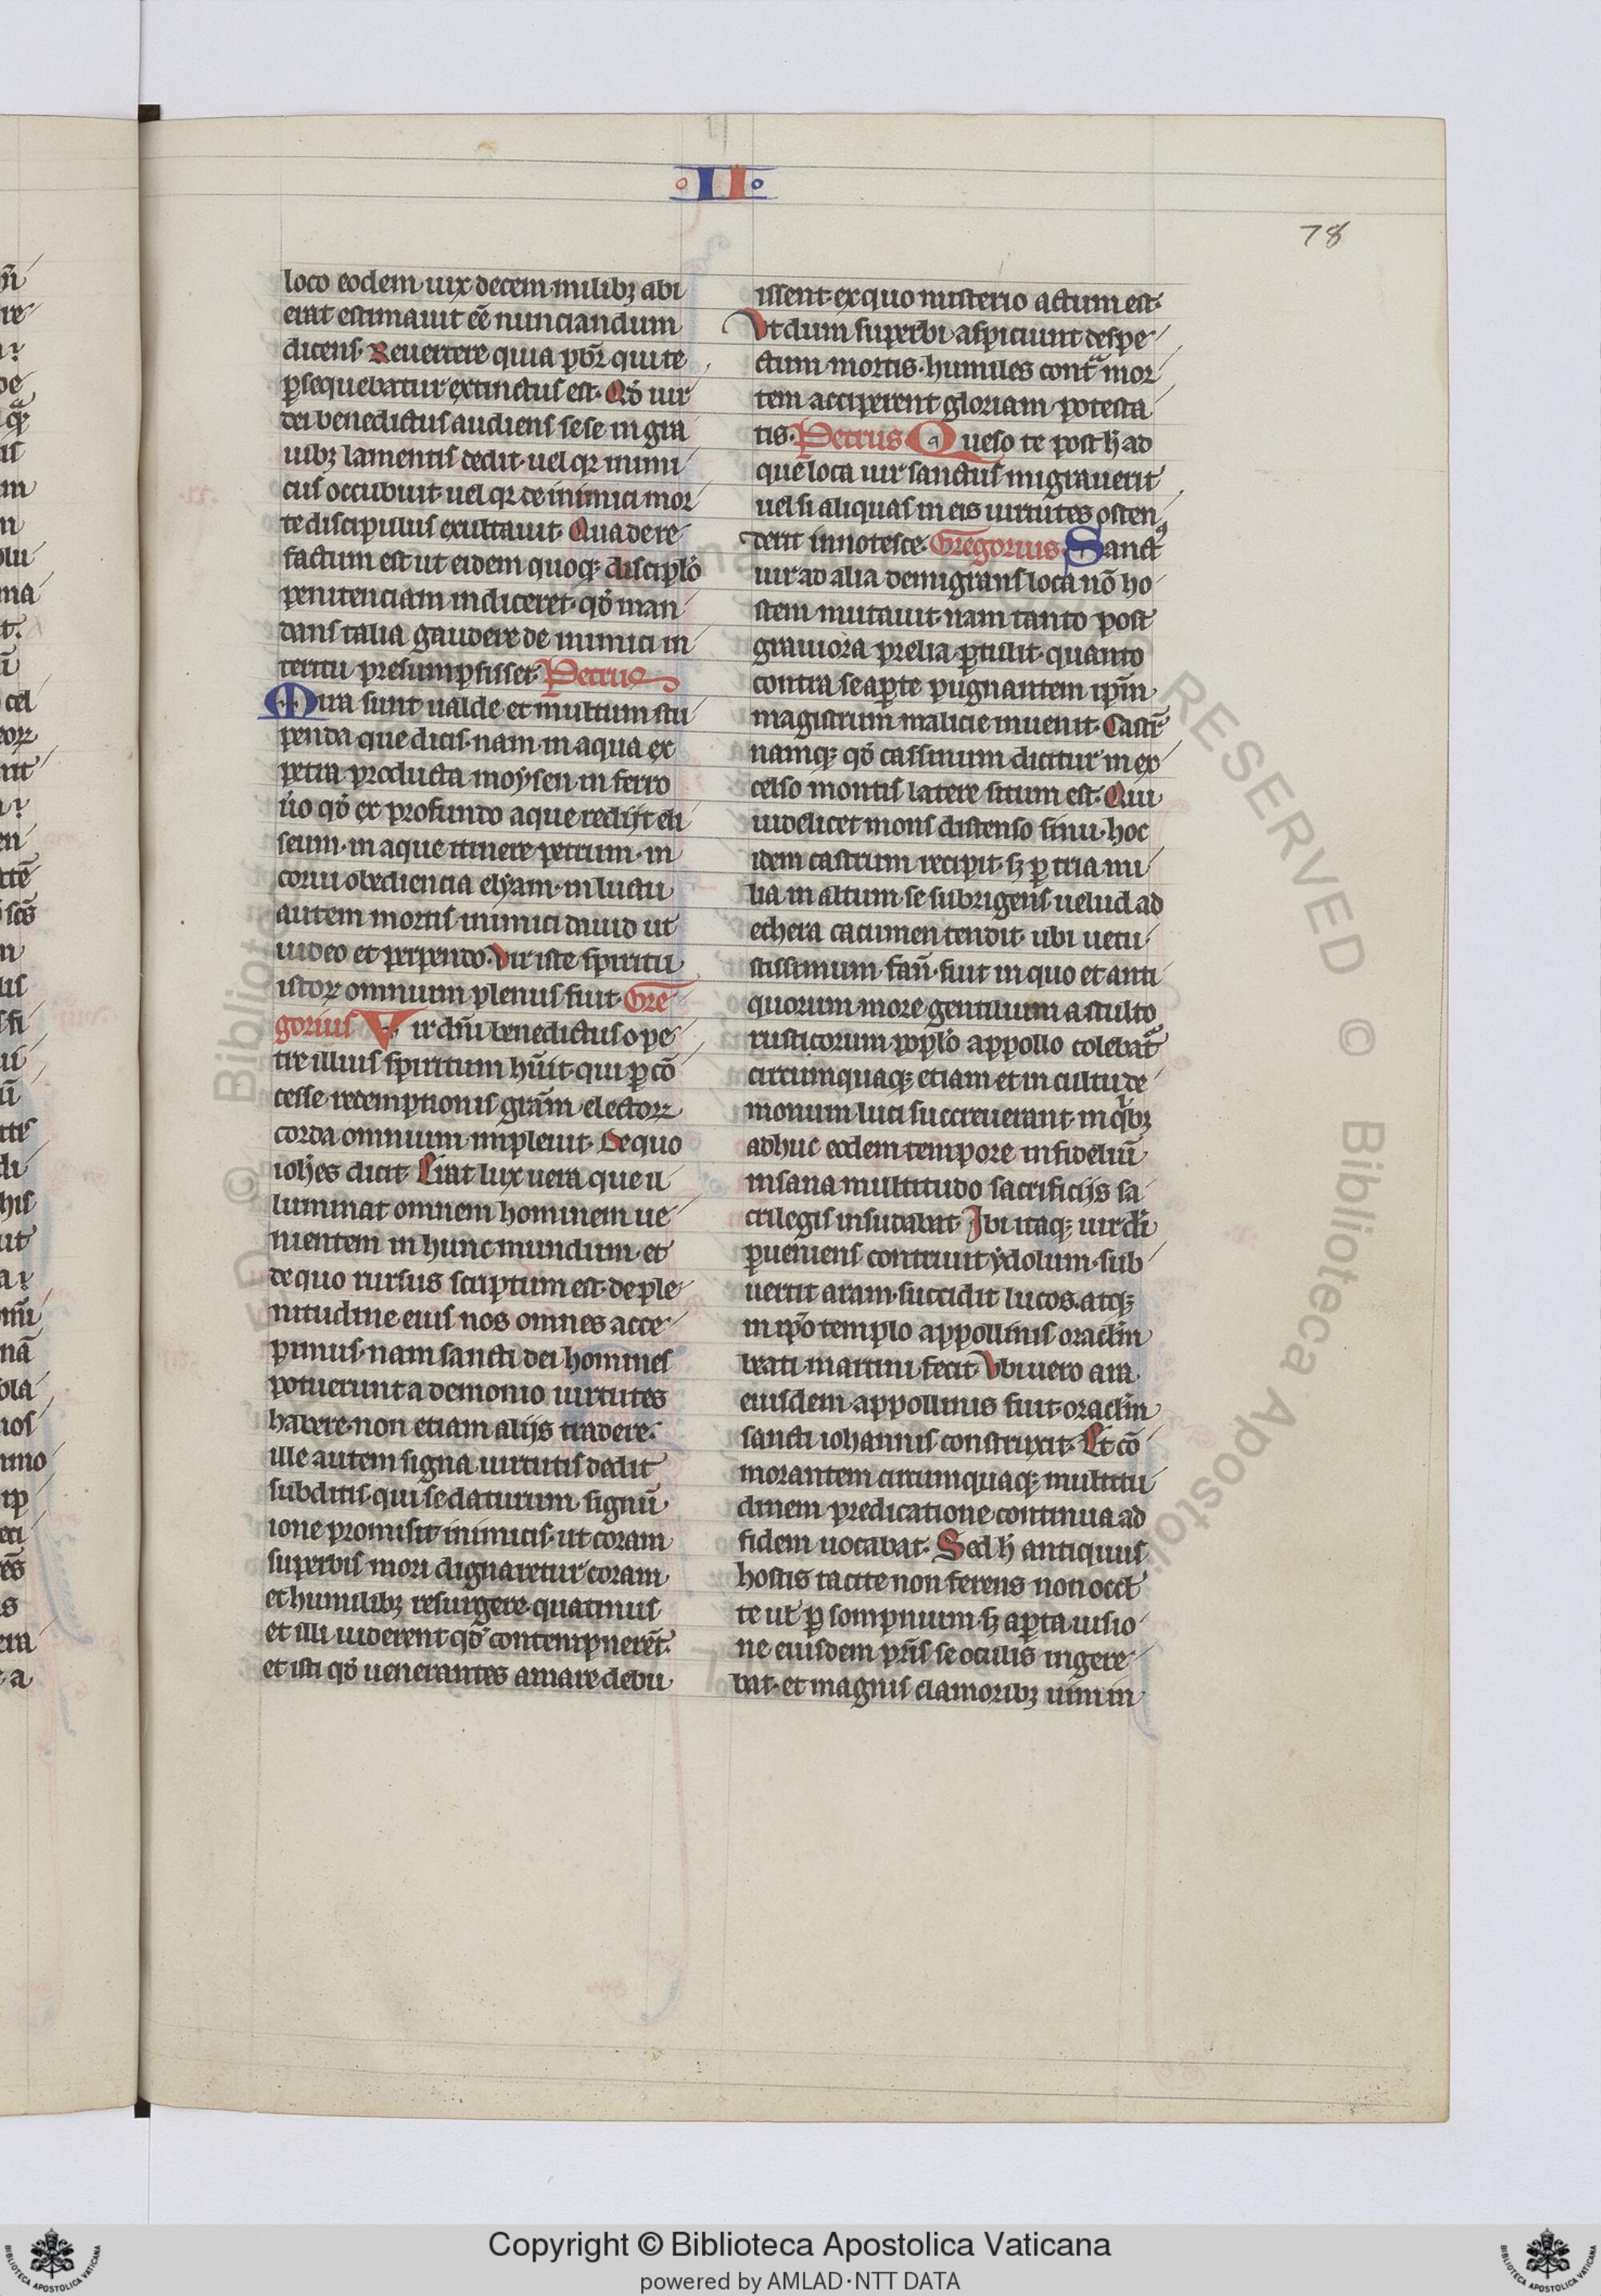 II
78
loco eodem uix decem milibꝫ abi
erat estimauit eē nunciandum
dicens. Reuertere quia pbr̄ qui te
ꝑsequebatur extinctus est. Qd̓ uir
dei benedictus audiens sese in gra
uibꝫ lamentis dedit. uel qꝛ inimi
cus occubuit. uel qꝛ de inimici mor
te discipulus exultauit. Qua de re
factum est ut eidem quoqꝫ disciplo̓
penitenciam indiceret. qd̓ man
dans talia gaudere de inimici in
teritu presumpsisset. Petrus
Mira sunt ualde et multum stu
penda que dicis. nam in aqua ex
petra producta moysen. in ferro
u̓o qd̓ ex profundo aque redijt eli
seum. in aque itinere petrum. in
corui obediencia elyam. in luctu
autem mortis inimici dauid ut
uideo et perpendo. Vir iste spiritu
iustoꝝ omnium plenus fuit. Gre
gorius Vir dn̄i benedictus o pe
tre illius spiritum hūit. qui ꝑ cō
cesse redemptionis grām electoꝝ
corda omnium impleuit. De quo
ioh̄es dicit. Erat lux uera que il
luminat omnem hominem ue
nientem in hunc mundum. et
de quo rursus scriptum est. de ple
nitudine eius nos omnes acce
pimus. nam sancti dei homines
potuerunt a domonio uirtutes
habere. non etiam alijs tradere.
ille autem signa uirtutis dedit
subditis. qui se daturum signū
ione promisit inimicis. ut coram
superbis mori dignaretur coram
et humilibꝫ resurgere. quatinus
et illi uiderent qd̓ contempnerēt.
et isti qd̓ uenerantes amare debu
issent. ex quo misterio actum est.
Vt dum superbi aspiciunt despe
ctum mortis. humiles contᷓ mor
tem acciperent gloriam potesta
tis. Petrus Queso te post h̄ ad
que loca uir sanctus migrauerit
uel si aliquas in eis uirtutes osten
derit innotesce. Gregorius Sanctꝰ
uir ad alia demigrans loca nō ho
stem mutauit. nam tanto post
grauiora prelia ꝑtulit. quanto
contra se aꝑte pugnantem ipm̄
magistrum malicie inuenit. Castr̄
namqꝫ qd̓ cassinum dicitur in ex
celso montis latere situm est. Qui
uidelicet mons distenso sinu. hoc
idem castrum recipit. sꝫ ꝑ tria mi
lia in altum se subrigens uelud ad
ethera cacumen tendit. ubi uetu
stissimum fan̄. fuit in quo et anti
quorum more gentilium a stulto
rusticorum poplo̓ appollo colebatᷓ
circumquaqꝫ etiam et in cultu de
monum luci succreuerant. in qⁱbꝫ
adhuc eodem tempore infideliū
insana multitudo sacrificijs sa
crilegis insudabat. Ibi itaqꝫ uir dī
ꝑueniens contriuit ydolum. sub
uertit aram. succidit lucos. atqꝫ
in ipō templo appollinis oraclm̄
beati martini fecit. Vbi uero ara
eiusdem appollinis fuit. oraclm̄
sancti iohannis construxit. Et cō
morantem circumquaqꝫ multitu
dinem predicatione continua ad
fidem uocabat. Sed h̄ antiquus
hostis tacite non ferens non occl̄
te ut ꝑ sompnium. sꝫ aꝑta uisio
ne eiusdem pr̄is se oculis ingere
bat. et magnis clamoribꝫ uim in
Copyright © Biblioteca Apostolica Vaticana
powered by AMLAD·NTT DATA